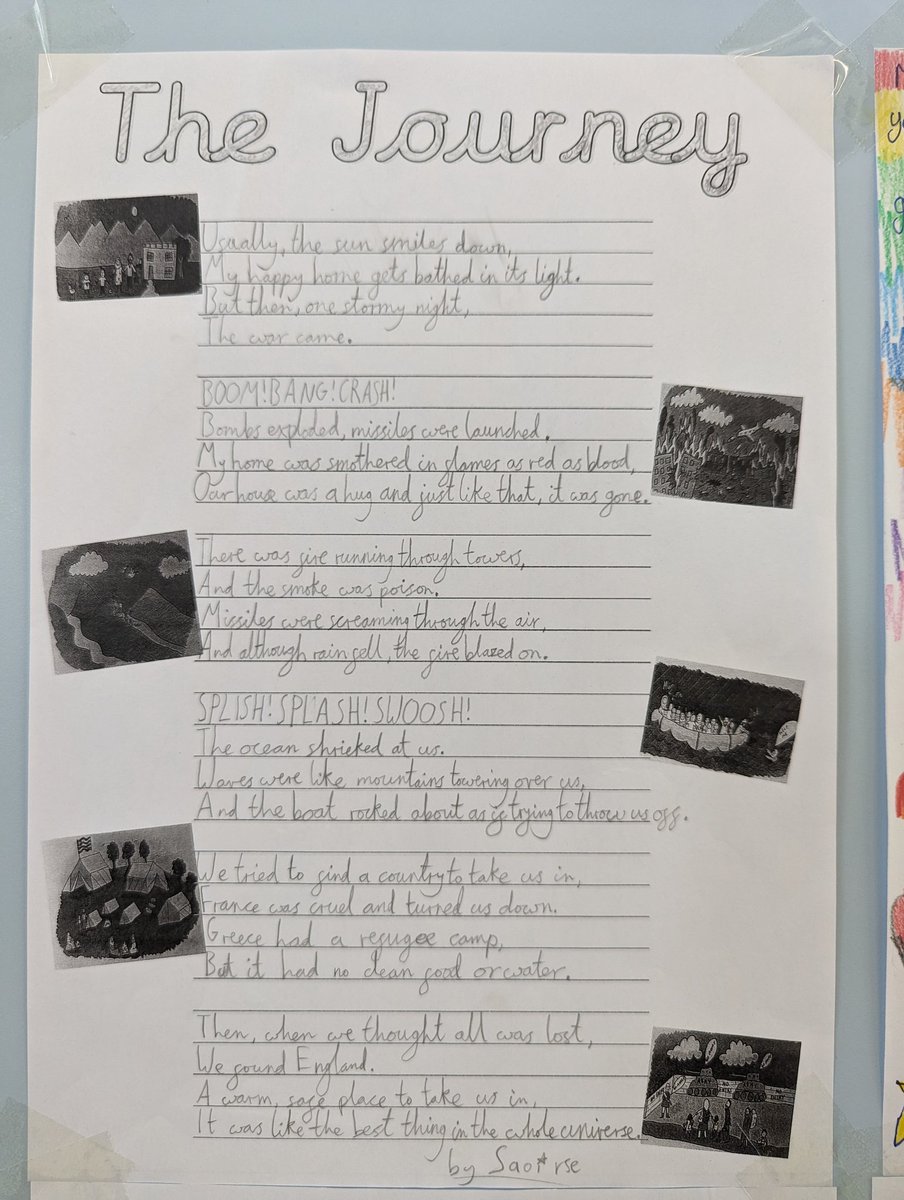 The Journey
Usually, the sun smiles down,
My happy home gets bathed in its light.
But then, one stormy night,
The war came.
BOOM! BANG! CRASH!
Bombs exploded, missiles were launched.
My home was smothered in flames as red as blood,
Our house was a hug and just like that, it was gone.
There was fire running through towers,
And the smoke was poison.
Missiles were screaming through the air,
And although rain fell, the fire blazed on.
SPLISH! SPLASH! SWOOSH!
The ocean shrieked at us.
Waves were like mountains towering over us,
And the boat rocked about as if trying to throw us off.
We tried to find a country to take us in,
France was cruel and turned us down.
Greece had a refugee camp,
But it had no clean food or water.
Then, when we thought all was lost,
We found England.
A warm, safe place to take us in,
It was like the best thing in the whole universe.
by Saoirse